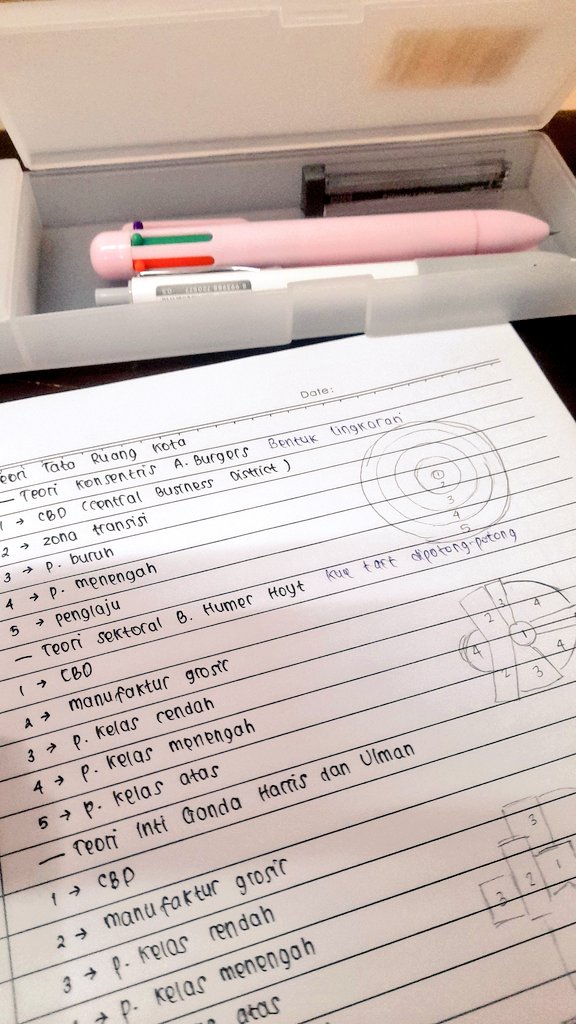 Date:
Teori Tata Ruang Kota
— Teori Konsentris A. Burgers Bentuk lingkaran
1 → CBD (Central Business District)
2 → zona transisi
3 → P. buruh
4 → P. menengah
5 → penglaju
1
2
3
4
5
— Teori sektoral B. Humer Hoyt kue tart dipotong-potong
1 → CBD
2 → manufaktur grosir
3 → P. kelas rendah
4 → P. kelas menengah
5 → P. kelas atas
3
4
2
1
4
4
2
3
— Teori Inti Ganda Harris dan Ulman
1 → CBD
2 → manufaktur grosir
3 → P. kelas rendah
→ P. kelas menengah
atas
3
1
2
3